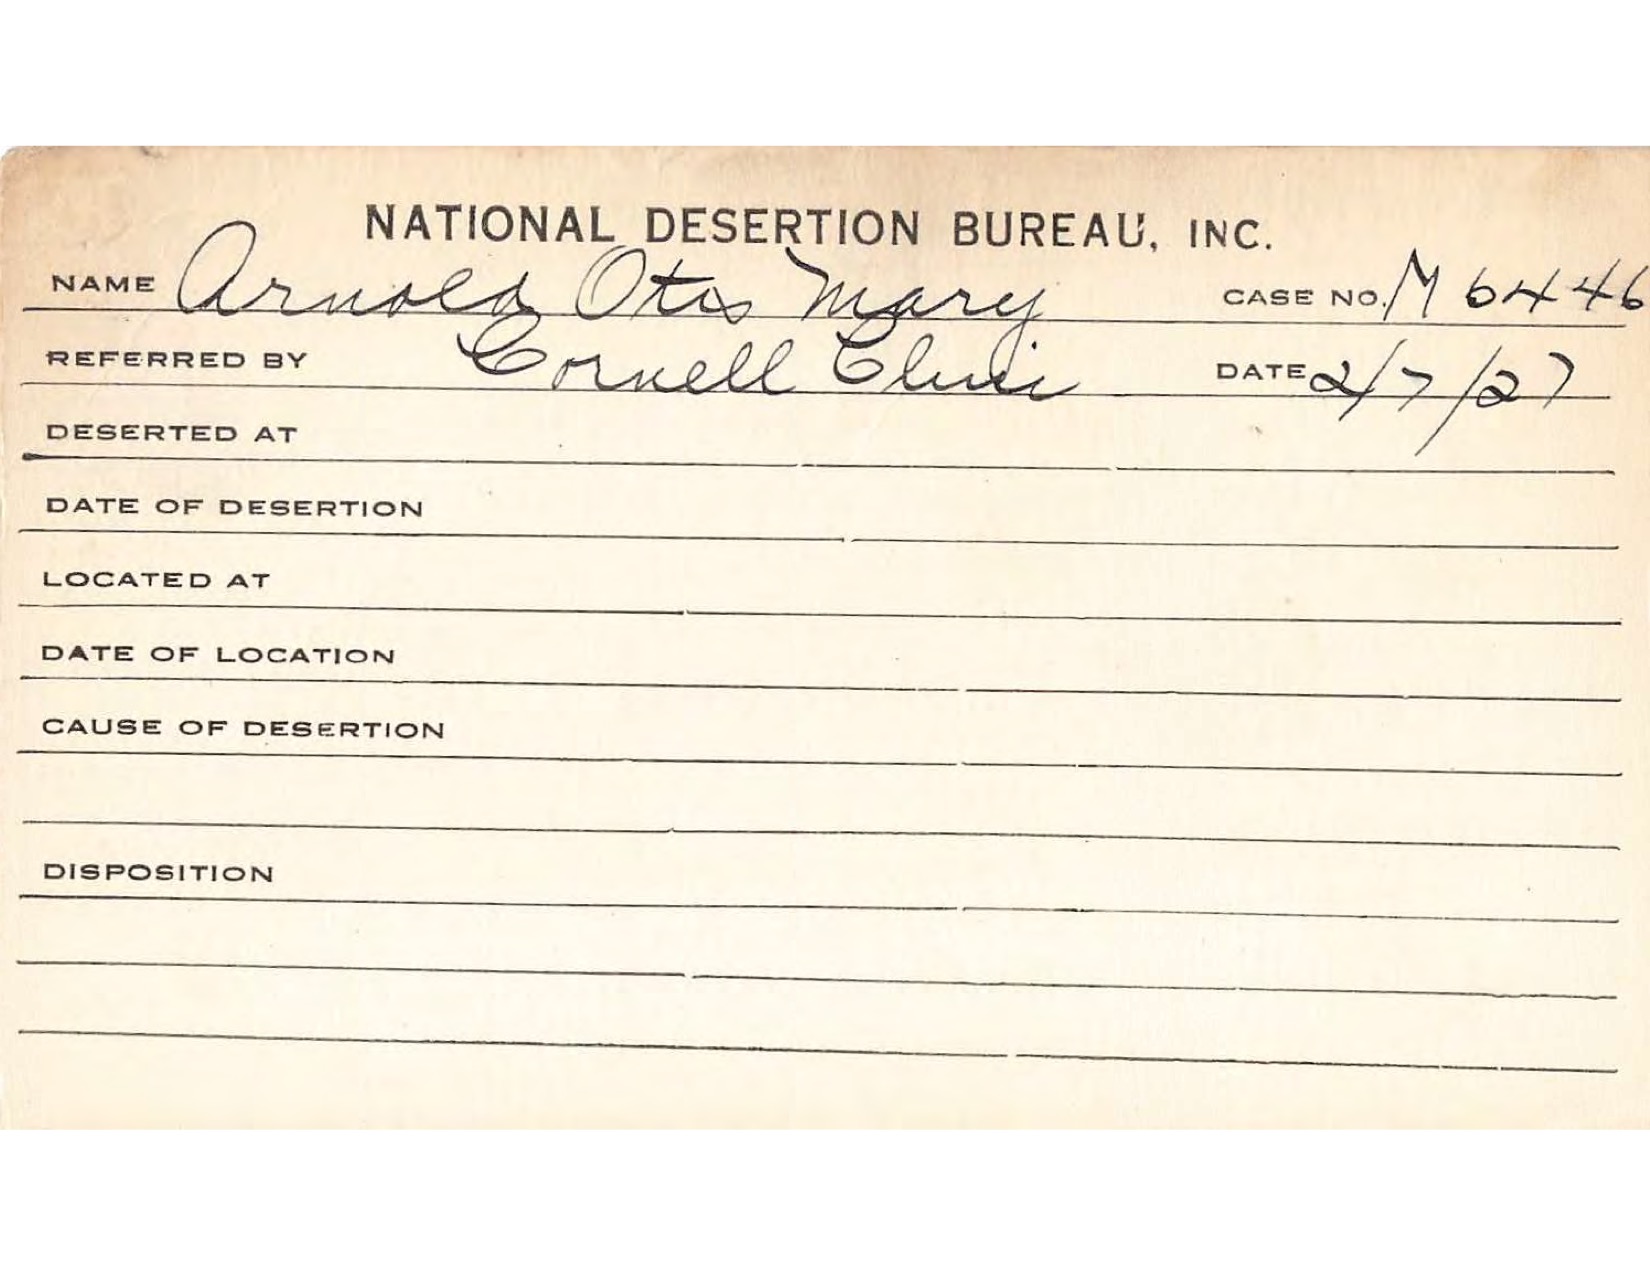 NATIONAL DESERTION BUREAU, INC.
NAME Arnold Otis Mary CASE NO. M 6446
REFERRED BY Cornell Clinic DATE 2/7/27
DESERTED AT
DATE OF DESERTION
LOCATED AT
DATE OF LOCATION
CAUSE OF DESERTION
DISPOSITION